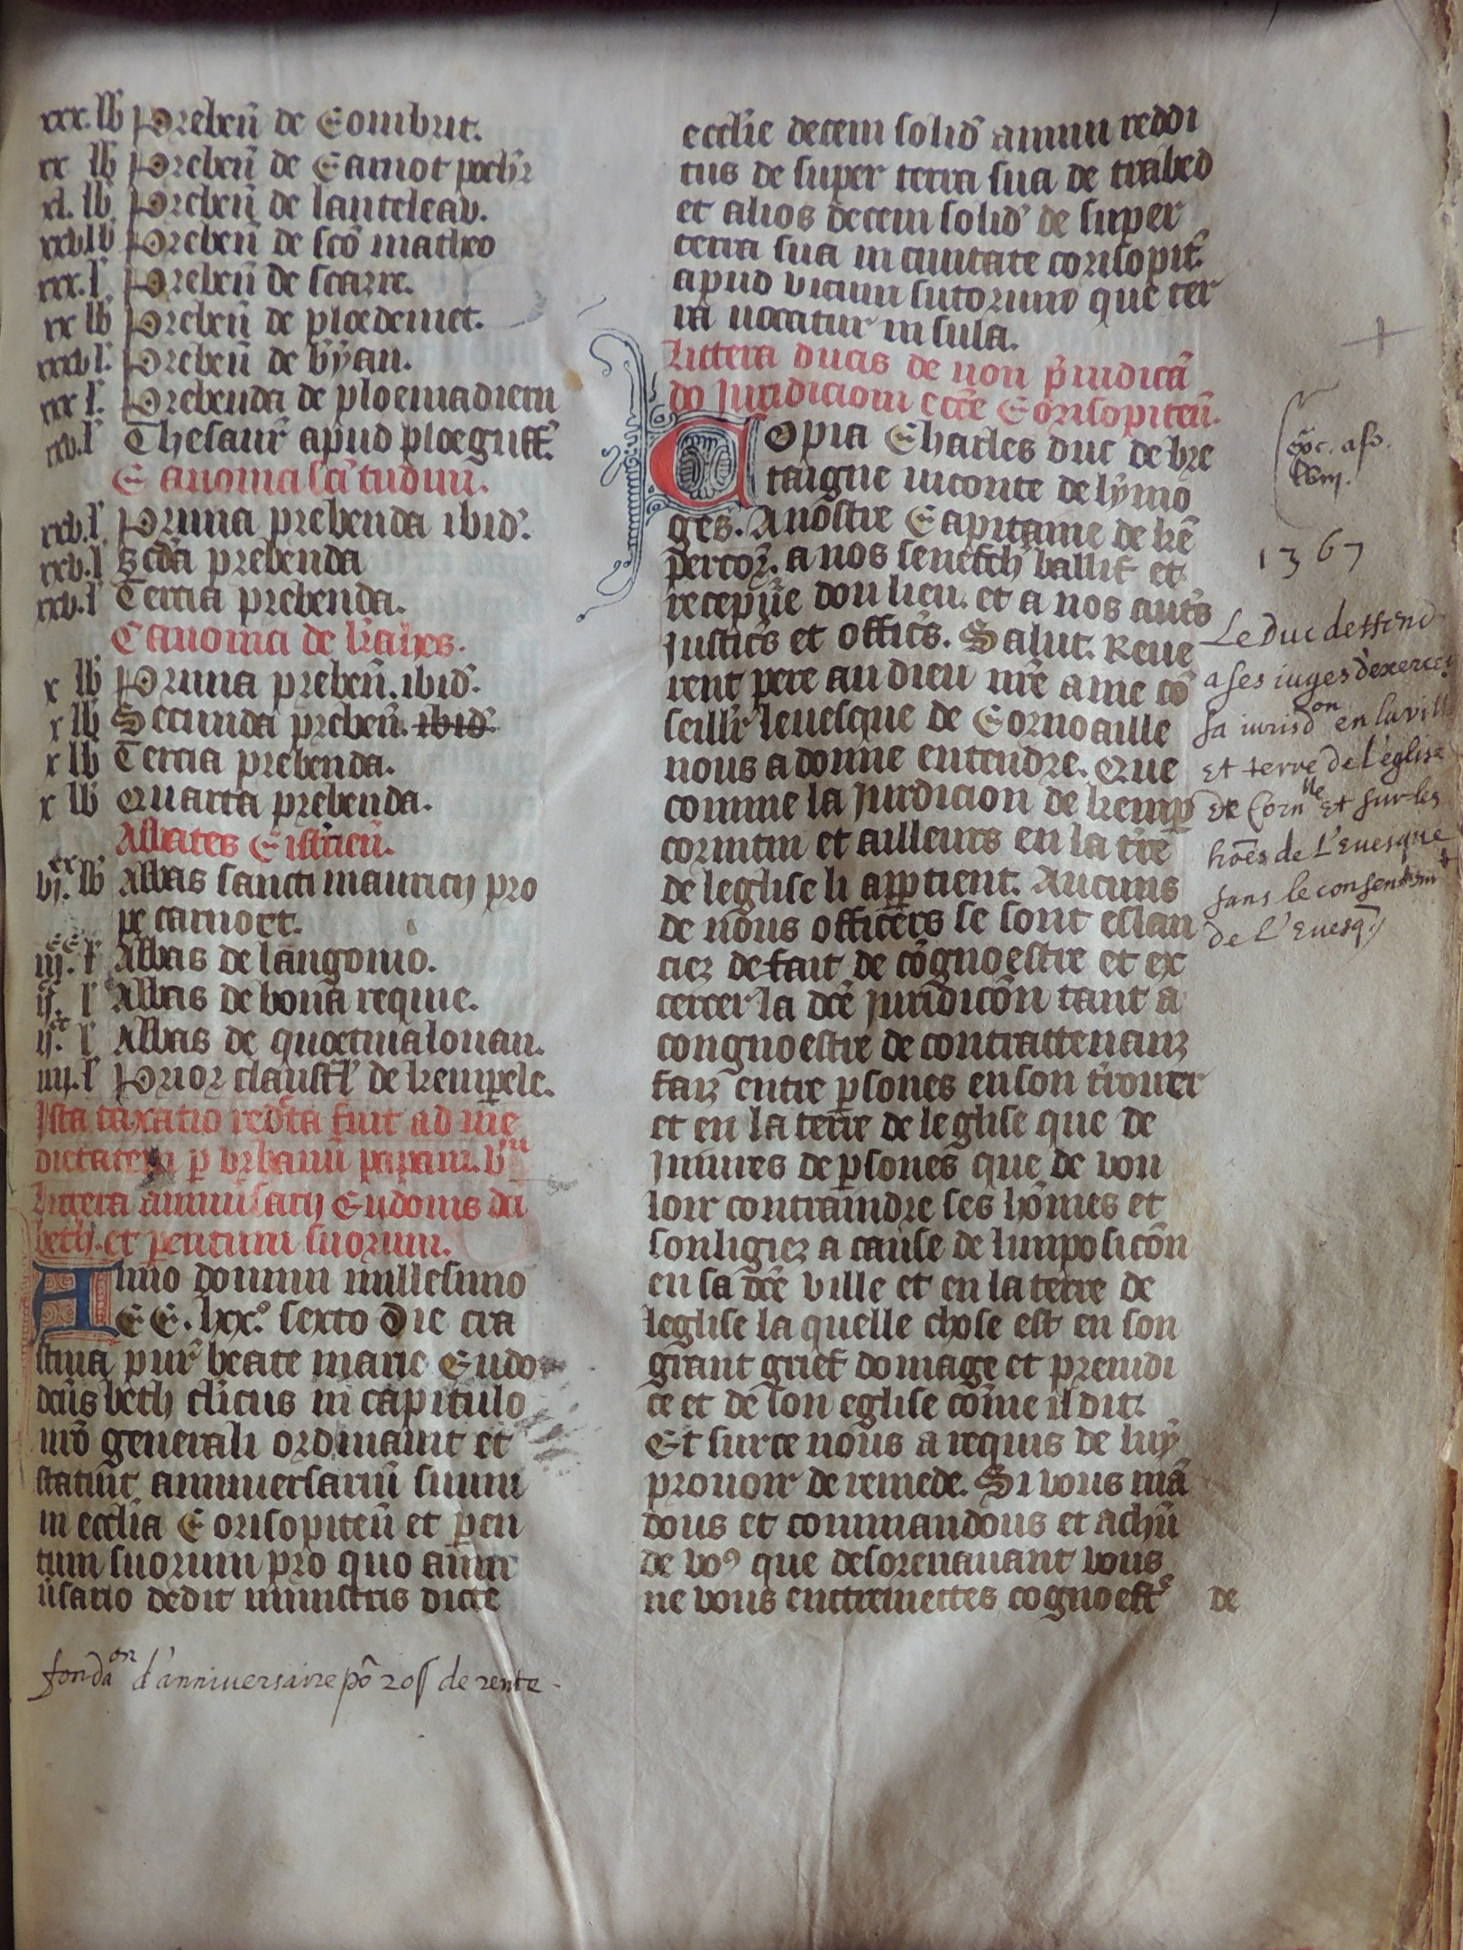 xxx. lb Prebeñ de Combrit.
xx lb Prebeñ de Camot
xl. lb. Prebeñ de lanteleau.
xxv lb Prebeñ de sco matheo
xxx. l' Prebeñ de scazre.
xx lb Prebeñ de ploedemet.
xxxv l'. Prebeñ de
xxx l'. Prebenda de ploemadiern
xxv. l' Thesaur apud ploeguff.
Canonia sci tudini.
xxv. l' Prima prebenda ibid.
xxv. l Scda prebenda
xxv. l' Tercia prebenda.
Canonia de
x lb Prima prebeñ. ibid.
x lb Secunda prebeñ. ibid
x lb Tercia prebenda.
x lb Quarta prebenda.
Abbates Cistercieñ.
vj.xx lb Abbas sancti mauricij pro
pe carnoet.
iij.CC l' Abbas de langonio.
l' Abbas de bona requie.
l' Abbas de
iiij. l' Prior claustl' de kemperele.
Ista taxatio redcta fuit ad me
dictatem p vrbanu papam. v
Littera anniusarij Eudonis du
beth. et pentum suorum.
Anno domini millesimo
CC. lxx.º sexto Die cra
stina pur beate marie Eudo
beth clicus in capitulo
nro generali ordinauit et
statuit anniuersariu suum
in ecclia Corisopiteñ et pen
tum suorum pro quo anni
usario dedit ministris dicte
fonda on d'anniuersaire po 20 s de rente.
ecclie decem solid annui reddi
tus de super terra sua de trabed
et alios decem solid de super
terra sua in ciuitate corisopit.
apud vicum sutorum que ter
ra uocatur insula.
Littera ducis de non piudica
do Juridicioni ecce Corisopiteñ.
Copia Charles duc de bre
taigne uiconte de lymo
ges. A nostre Capitaine de ke
percor. a nos senesch ballif et
recepue dou lieu. et a nos auts
Justics et offics. Salut. Reue
rent pere an dieu nre ame co
seillr leuesque de Cornoaille
nous a donne entendre. Que
comme la Jurdicion de kemp
corintin et ailleurs en la tre
de leglise li appartient. Aucuns
de nous officers se sont eslan
ciez de fait de cognoestre et ex
cercer la dce juridicon tant a
congnoestre de contratten anz
faiz entre psones en son trouer
et en la terre de leglise que de
Jniures de psones que de vou
loir contraindre ses homes et
sonligiez a cause de limposicon
en sa dce ville et en la terre de
leglise la quelle chose est en son
grant grief domage et preiudi
ce et de son eglise come il dit.
Et surce nous a requis de luy
prouoir de remede. Si vous ma
dons et commandons et
de vo9 que desorenauant vous
ne vous entremettes cognoestr de
1367
Le Duc deffend
a ses iuges d'exercer
sa iurisdon en la vill
et terre de l'eglise
de Cornlle et sur les
hoes de L'Euesque
sans le consentemt
de L'Euesq